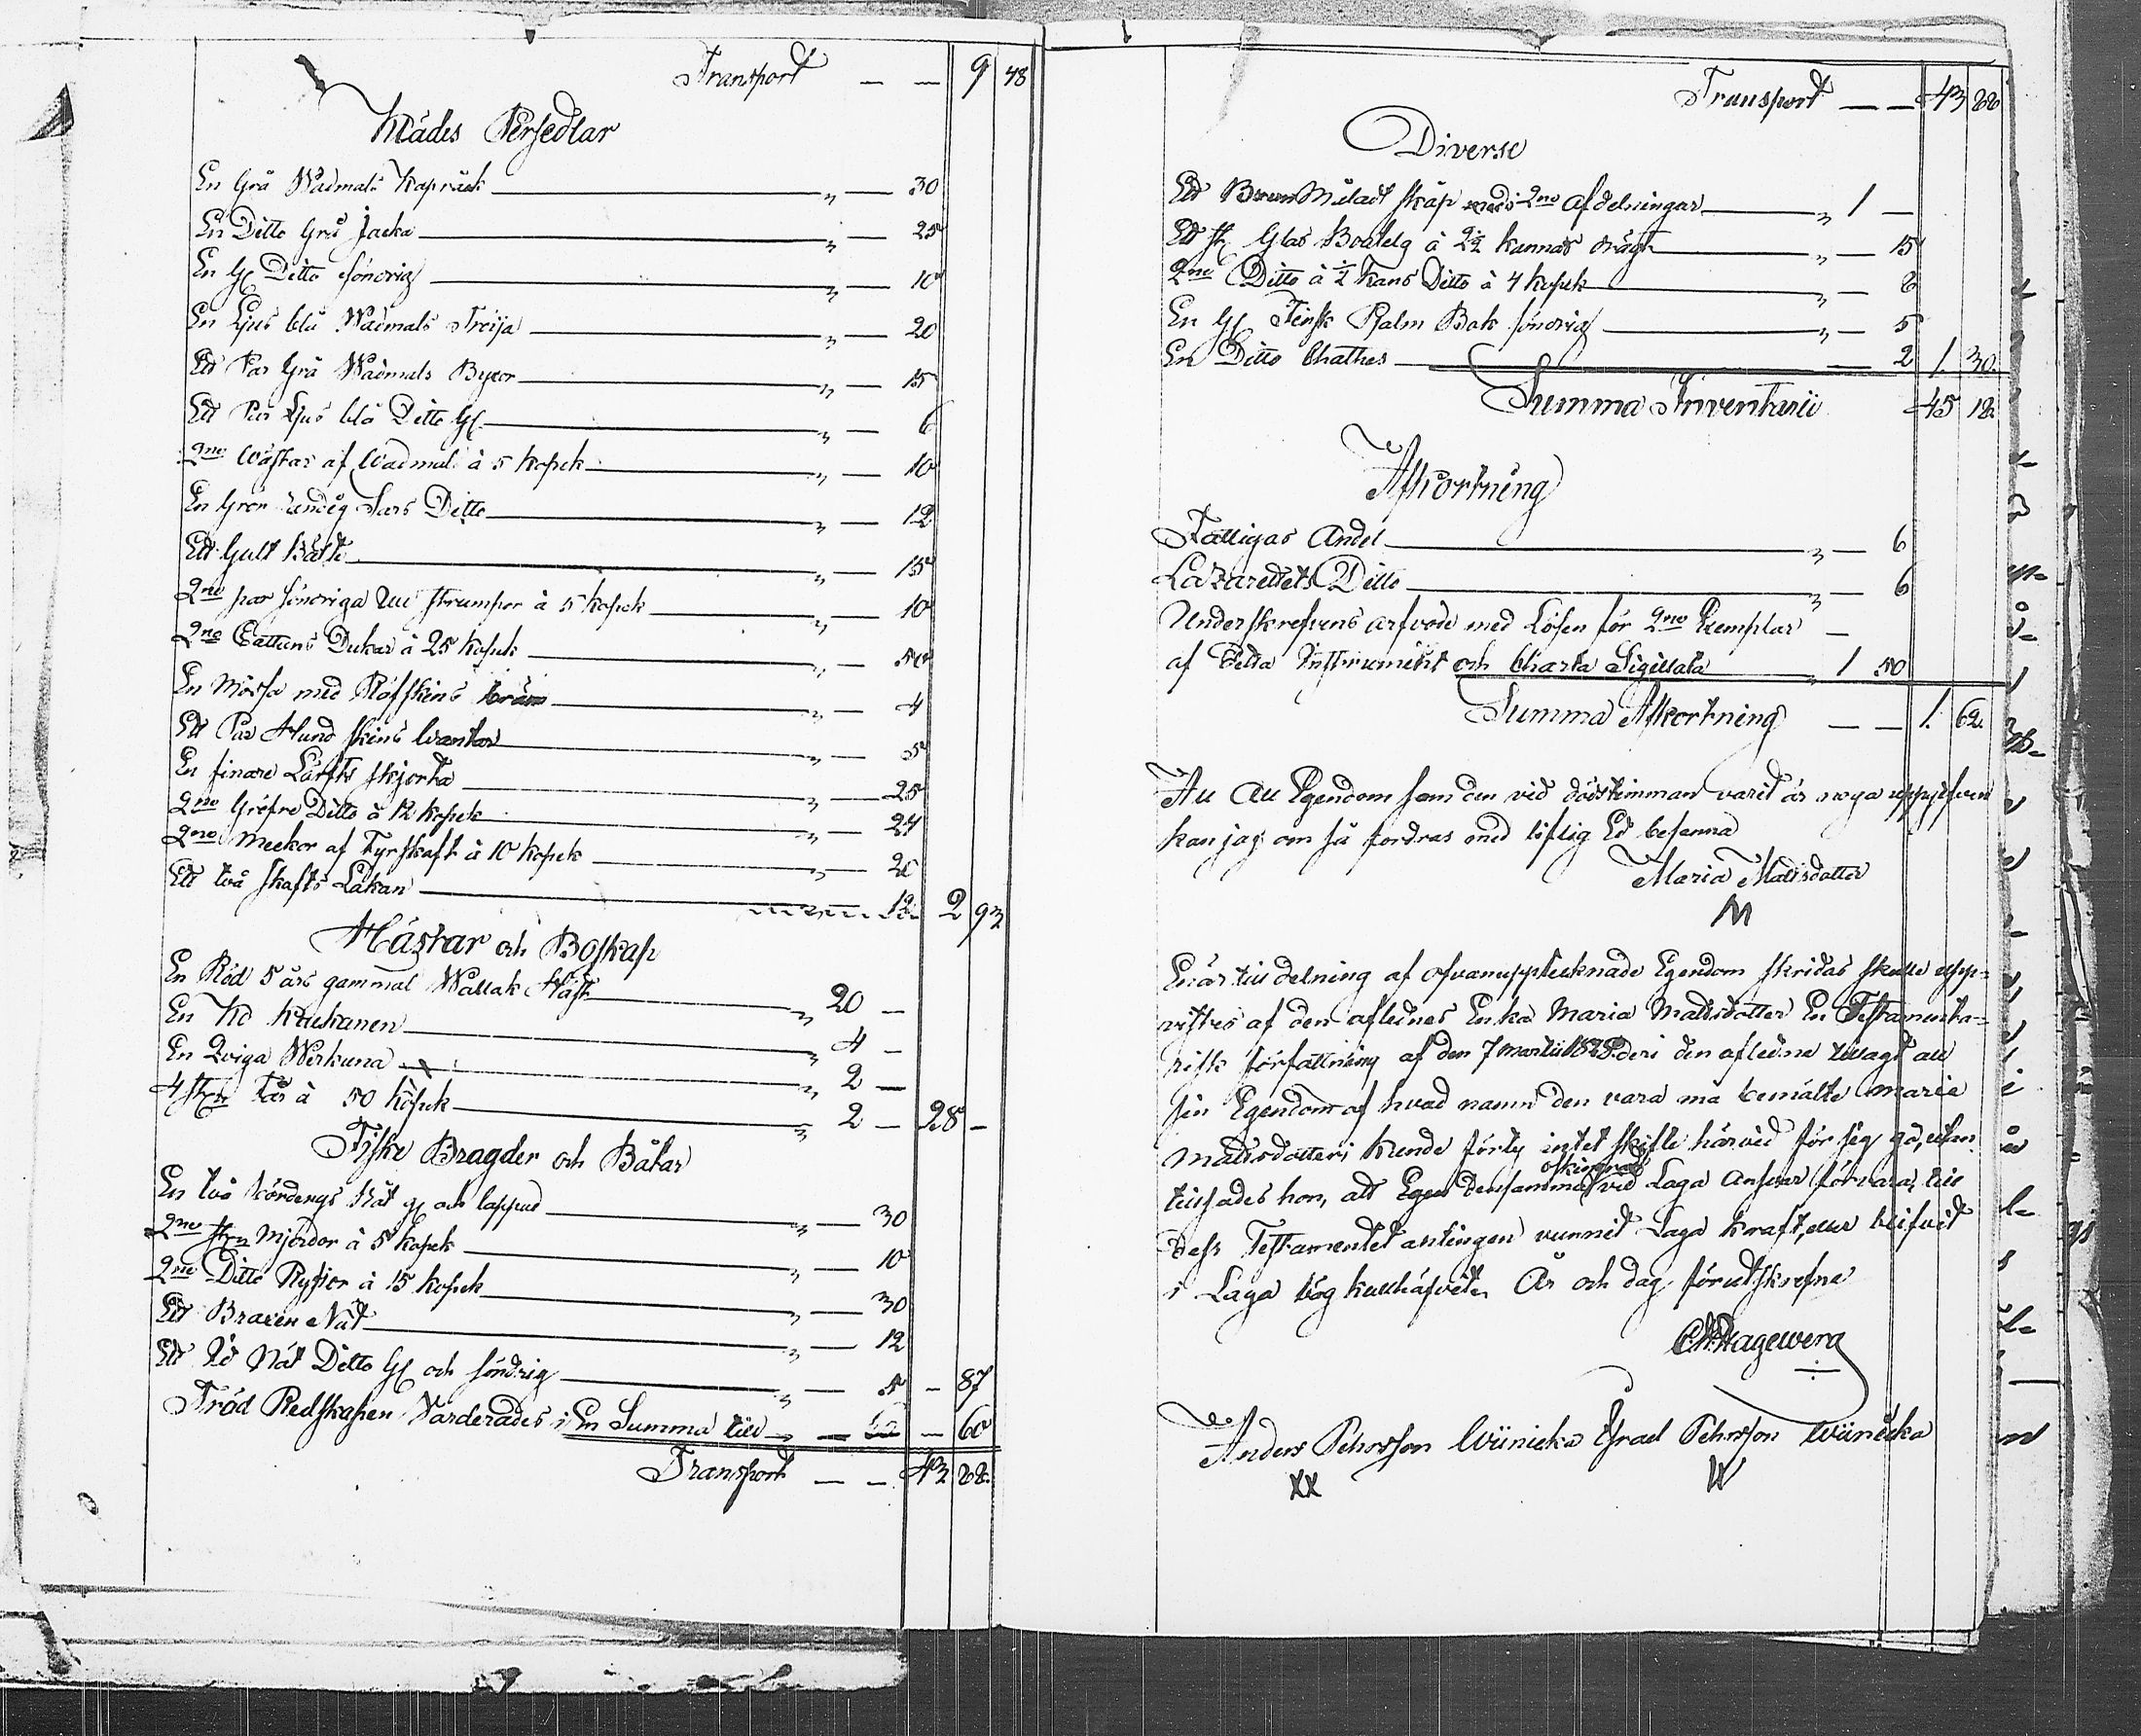 Transport — — 9 48
Klädes Persedlar
En Grå Wadmals Kapråck — " — 30
En Ditto Grå Jacka — " — 25
En Gl Ditto söndrig — " — 10
En Ljus blå Wadmals Tröija — " — 20
Ett Par Grå Wadmals Byxor — " — 15
Ett Par Ljus blå Ditto Gl — " — 6
2ne Wästar af Wadmal à 5 Kopek — " — 10
En Grön randig Sars Ditto — " — 12
Ett Gult Bälte — " — 15
2ne par söndriga Ull strumpor à 5 Kopek — " — 10
2ne Cattuns Dukar à 25 Kopek — " — 50
En Mössa med Räfskins bräm — " — 4
Ett Par Hund skins Wantar — " — 5
En finare Lärfts skjorta — " — 25
2ne Gröfre Ditto à 12 Kopek — " — 24
2ne Meckor af Fyrskaft à 10 Kopek — " — 20
Ett två skafts Lakan — 12 2 93
Hästar och Boskap
En Röd 5 års gammal Wallak Häst — " 20 —
En Ko Kaukanen — " 4 —
En Qviga Werkuna — " 2 —
4 st Får à 50 Kopek — " 2 — 28 —
Fiske Bragder och Båtar
En två bördings Båt gl och lappad — " — 30
2ne st Mjerdor à 5 Kopek — " — 10
2ne Ditto Rysior à 15 Kopek — " — 30
Ett Braxen Nät — " — 12
Ett Id Nät Ditto Gl och söndrig — " — 5 — 87
Träd Redskapen Värderades i En Summa till — — 60
Transport — — 43 88.
Transport — — 43 88
Diverse
Ett Brun Målat skåp med 2ne Afdelningar — " 1 —
Ett st Glas Boutelg à 2½ kannas drägt — " — 15
2ne Ditto à ½ Kans Ditto à 4 Kopek — " — 8
En Gl Finsk Psalm Bok söndrig — " — 5
En Ditto Chathes — 2 1. 30.
Summa Inventarii 45 18.
Afkortning
Fattigas Andel — " — 6
Lazarettets Ditto — " — 6
Underskrefvens arfvode med Lösen för 2ne Exemplar —
af detta Instrument och Charta Sigillata — " 1 50
Summa Afkortning — — 1. 62.
At all Egendom som den vid dödstimman varit är noga uppgifven
kan jag om så fordras med liflig Ed besanna
Maria Mattsdotter
M
Enär till delning af ofvanupptecknade Egendom skridas skulle upp-
vistes af den aflednes Enka Maria Mattsdotter En Testamenta-
risk författning af den 7 Martii deri den afledne tillagt all
sin Egendom af hvad namn den vara må bemälte Maria
Mattsdotter; Kunde förty intet skifte härvid för sig gå, utan
tillsades hon, att Egen densamma oskingrad vid Laga Ansvar förvara, till
dess Testamentet antingen vunnit Laga Kraft, eller blifvit
i Laga väg kullhäfvet. År och dag förutskrefne
Anders Pehrsson Wiinicka Israel Pehrsson Wiinicka
XX